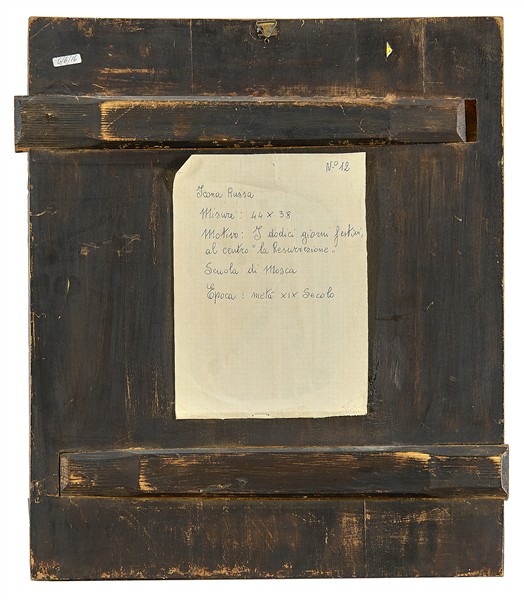 N.º 12
Icona Russa
Misure: 44 x 38
Motivo: I dodici giorni festivi,
al centro "la Resurrezione"
Scuola di Mosca
Epoca: metà XIX Secolo